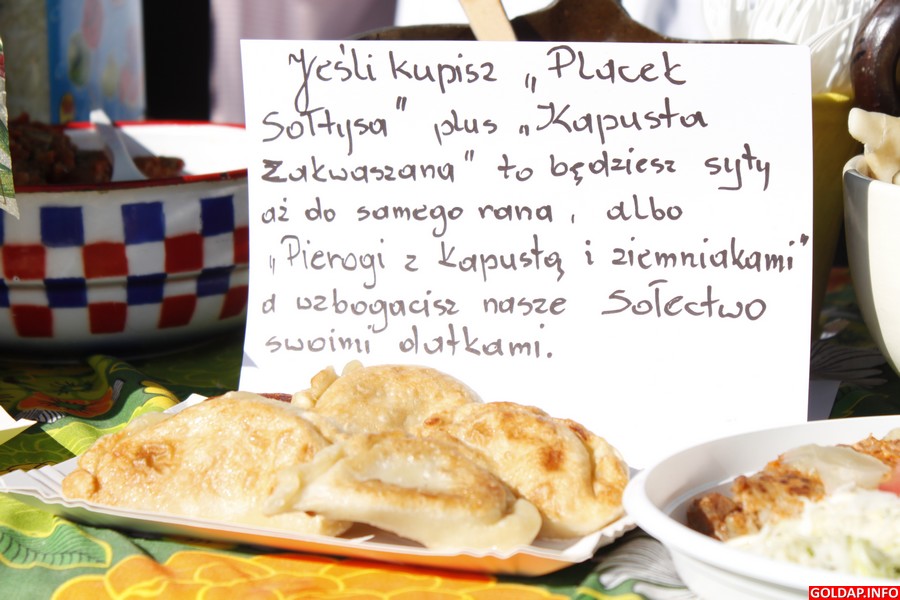 Jeśli kupisz „Placek
Sołtysa" plus „Kapusta
Zakwaszana" to będziesz syty
aż do samego rana, albo
„Pierogi z kapustą i ziemniakami"
a wzbogacisz nasze Sołectwo
swoimi datkami.
GOLDAP.INFO